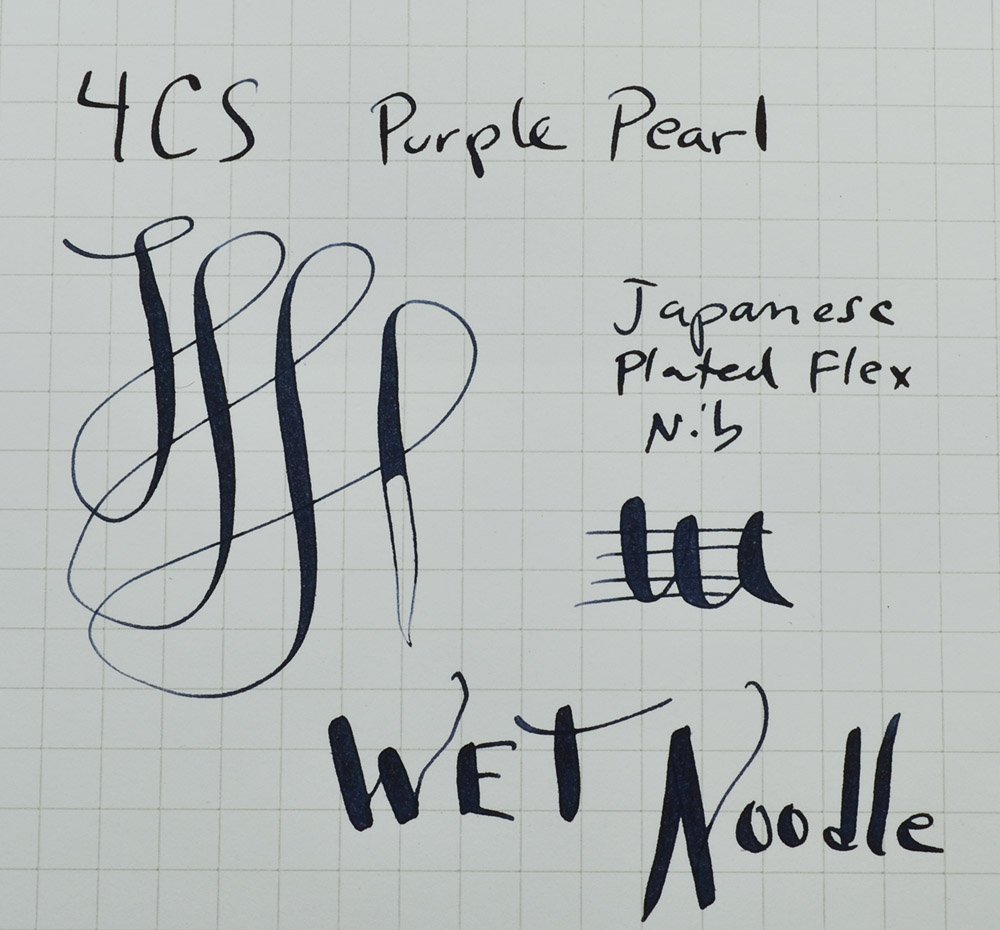 4CS Purple Pearl
Japanese
Plated Flex
Nib
WET Noodle